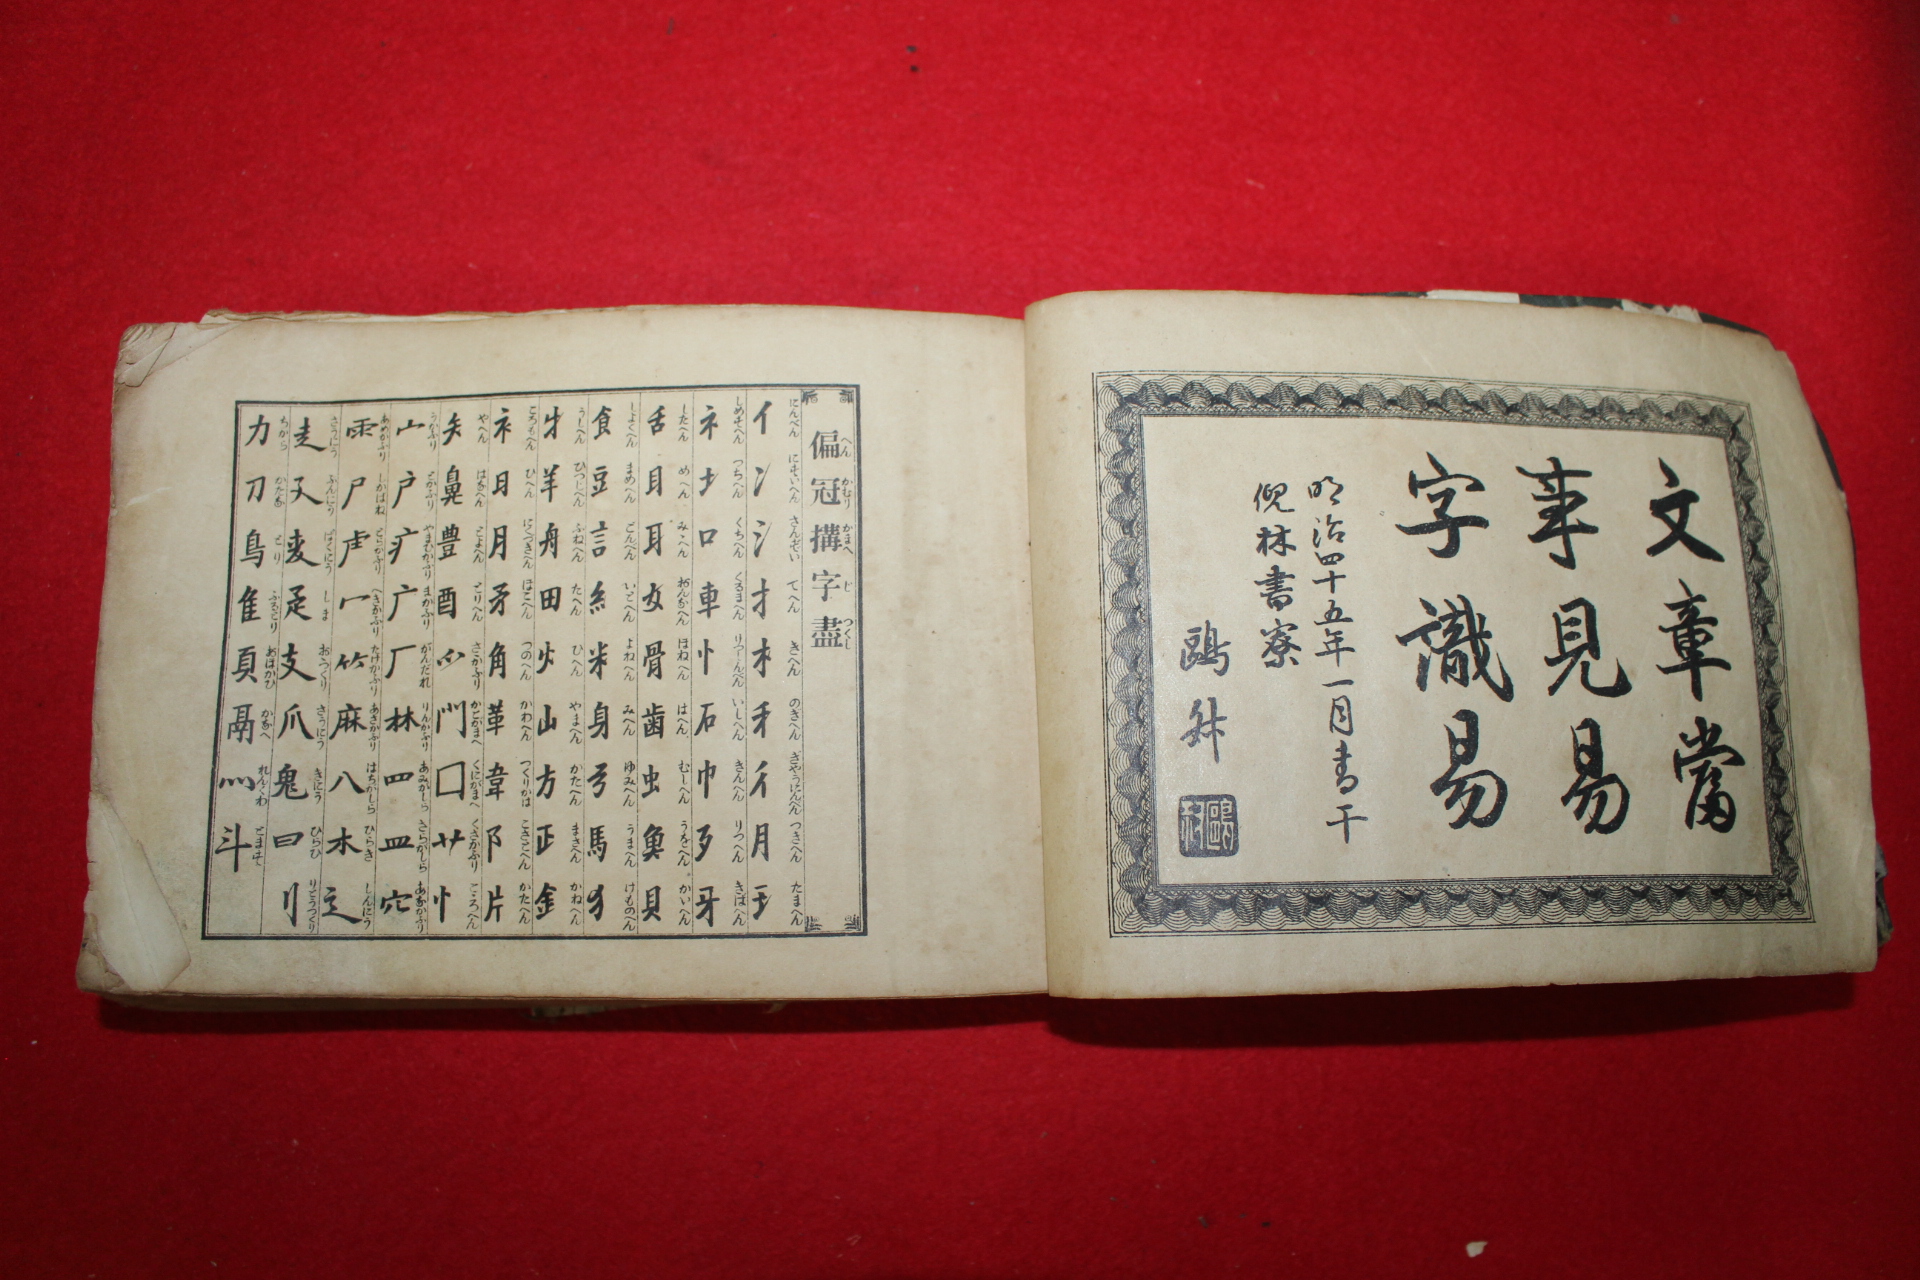 文章當
事見易
字識易
明治四十五年一月書于
倪林書寮
鵑舛
偏冠構字盡
へんかむりかまへじつくし
亻冫氵扌木禾彳月王
にんべん にすいへん さんずい てへん きへん のぎへん ぎやうにんべん つきへん たまへん
礻土口車忄石巾歹牙
しめすへん つちへん くちへん くるまへん りつしんべん いしへん きんへん りつへん きばへん
舌目耳女骨歯虫魚貝
したへん めへん みゝへん おんなへん ほねへん はへん むしへん うをへん かいへん
食豆言糸米身弓馬犭
しよくへん まめへん ごんべん いとへん よねへん みへん ゆみへん うまへん けものへん
牛羊舟田火山方正金
うしへん ひつじへん ふねへん たへん ひへん やまへん かたへん まさへん かねへん
衤日月矛角革韋阝片
ころもへん ひへん につきへん ほこへん つのへん かわへん つくりかは こざとへん かたへん
矢鼻豊酉爫門囗艹忄
やへん はなへん とよへん とりへん さかふり かどかまへ くにがまへ くさかふり こゝろへん
宀戸疒广厂林罒皿穴
うかふり とかふり やまひかふり まかふり がんだれ りんかふり あみがしら さらがしら あなかふり
雨尸虍冖竹麻八木辶
あめかふり しかばね とらかふり べきかふり たけかふり あさかふり はちがしら ひらき しんにう
走廴麦疋支爪鬼曰刂
さうにう ふんにう ばくにう しま おつくり さうにう きにう ひらび りとうつくり
力刀鳥隹頁鬲灬斗
ちから かたな とり ふるとり おほかひ かなへ れんぐわ とます